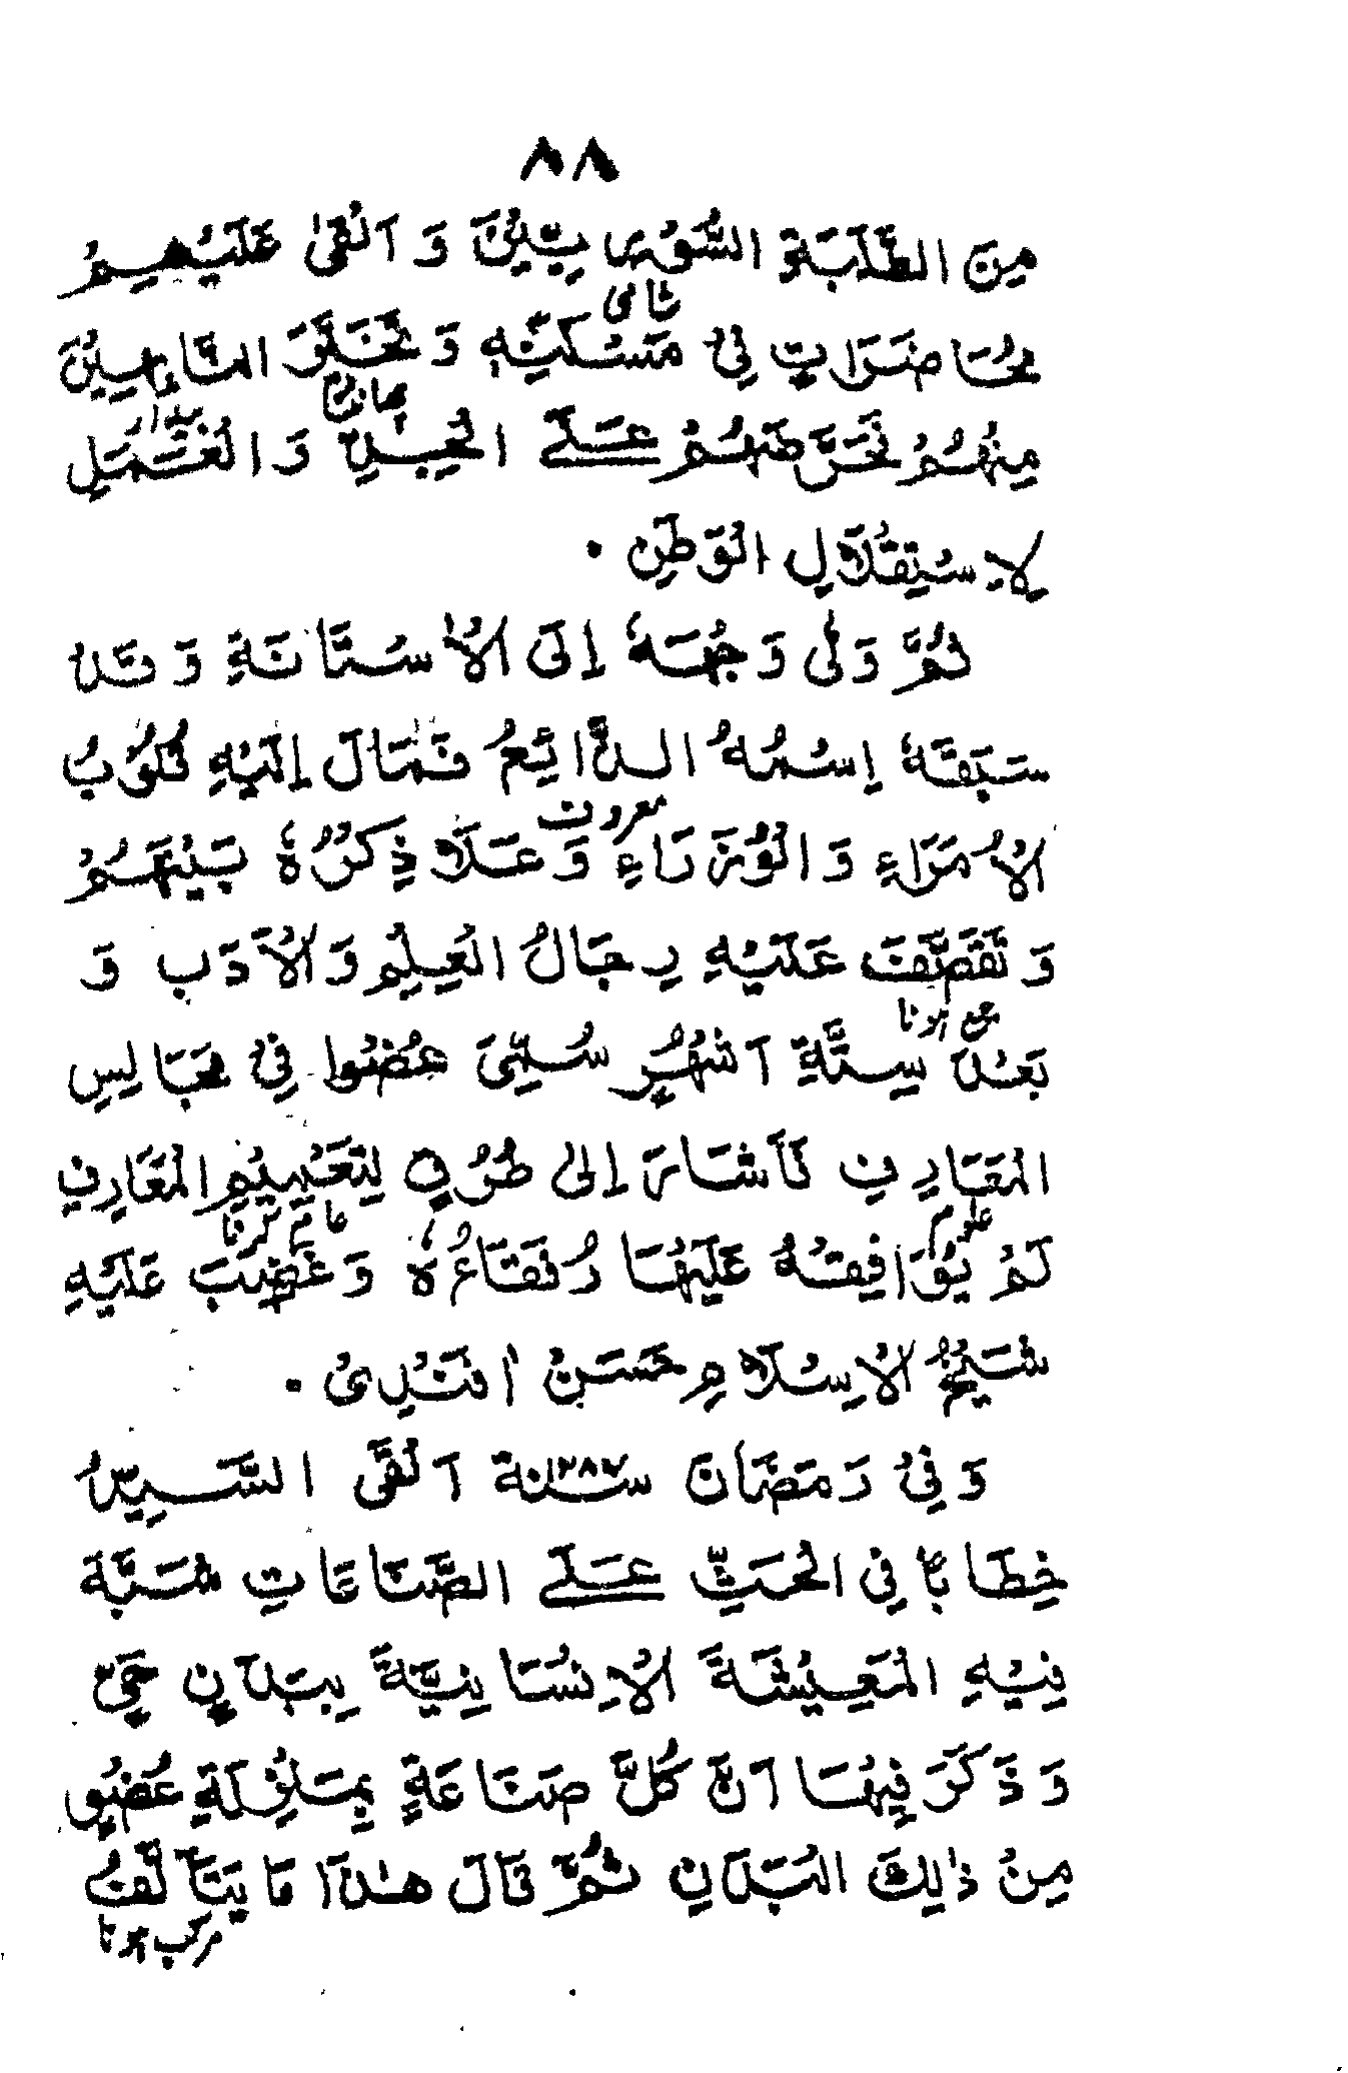 ٨٨
مِنَ الطَّلَبَةِ السُّوْرِيِّيْنَ وَ اَلْقٰى عَلَيْهِمْ
شامی
مُحَاضَرَاتٍ فِيْ مَسْكَنِهٖ وَ تَحَلَّقَ النَّابِهِيْنَ
مِنْهُمْ تَحَرَّضَهُمْ عَلَى الْجِدِّ وَ الْعَمَلِ
لِاِسْتِقْلَالِ الْوَطَنِ ۰
ثُمَّ وَلّٰى وَجْهَهٗ اِلَى الْاٰسْتَانَةِ وَ قَدْ
سَبَقَهٗ اِسْمُهُ الذَّائِعُ فَمَالَ اِلَيْهِ قُلُوْبُ
معروف
الْاُمَرَاءِ وَ الْوُزَرَاءِ وَ عَلَا ذِكْرُهٗ بَيْنَهُمْ
وَ تَقَصَّفَ عَلَيْهِ رِجَالُ الْعِلْمِ وَ الْاَدَبِ وَ
جمع ہونا
بَعْدَ سِتَّةِ اَشْهُرٍ سُمِّيَ عُضْوا فِيْ مَجَالِسِ
الْمَعَارِفِ فَاَشَارَ اِلٰى طُرُقٍ لِتَعْمِيْمِ الْمَعَارِفِ
علوم عام کرنا
لَمْ يُوَافِقْهُ عَلَيْهَا رُفَقَاءُهٗ وَ غَضِبَ عَلَيْهِ
شَيْخُ الْاِسْلَامِ حَسَنْ اٰفَنْدِىْ ۰
وَ فِيْ رَمَضَانَ سنة ١٢٨٧ اَلْقَى السَّيِّدُ
خِطَابًا فِي الْحَثِّ عَلَى الصَّنَاعَاتِ شَبَّهَ
فِيْهِ الْمَعِيْشَةَ الْاِنْسَانِيَّةَ بِبَدَنٍ حَيٍّ
وَ ذَكَرَ فِيْهَا اَنَّ كُلَّ صَنَاعَةٍ بِمَنْزِلَةِ عُضْوٍ
مِنْ ذٰلِكَ الْبَدَنِ ثُمَّ قَالَ هٰذَا مَا يَتَأَلَّفُ
مرکب ہونا